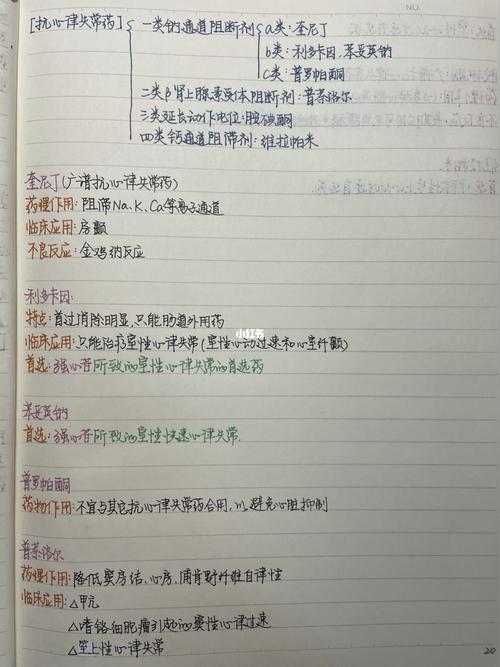 NO.
[抗心律失常药] 一类钠通道阻断剂 a类:奎尼丁
b类:利多卡因,苯妥英钠
c类:普罗帕酮
二类β肾上腺素受体阻断剂:普萘洛尔
三类延长动作电位:胺碘酮
四类钙通道阻滞剂:维拉帕米
奎尼丁(广谱抗心律失常药)
药理作用:阻滞Na、K、Ca等离子通道
临床应用:房颤
不良反应:金鸡纳反应
利多卡因:
特点:首过消除明显,只能肠道外用药
临床应用:只能治疗室性心律失常(室性心动过速和心室纤颤)
首选:强心苷所致的室性心律失常的首选药
小红书
苯妥英钠
首选:强心苷所致的室性快速心律失常.
普罗帕酮
药物作用:不宜与其它抗心律失常药合用,以避免心脏抑制
普萘洛尔
药理作用:降低窦房结、心房、浦肯野纤维自律性
临床应用:△甲亢
△嗜铬细胞瘤引起的窦性心律过速
△室上性心律失常
20